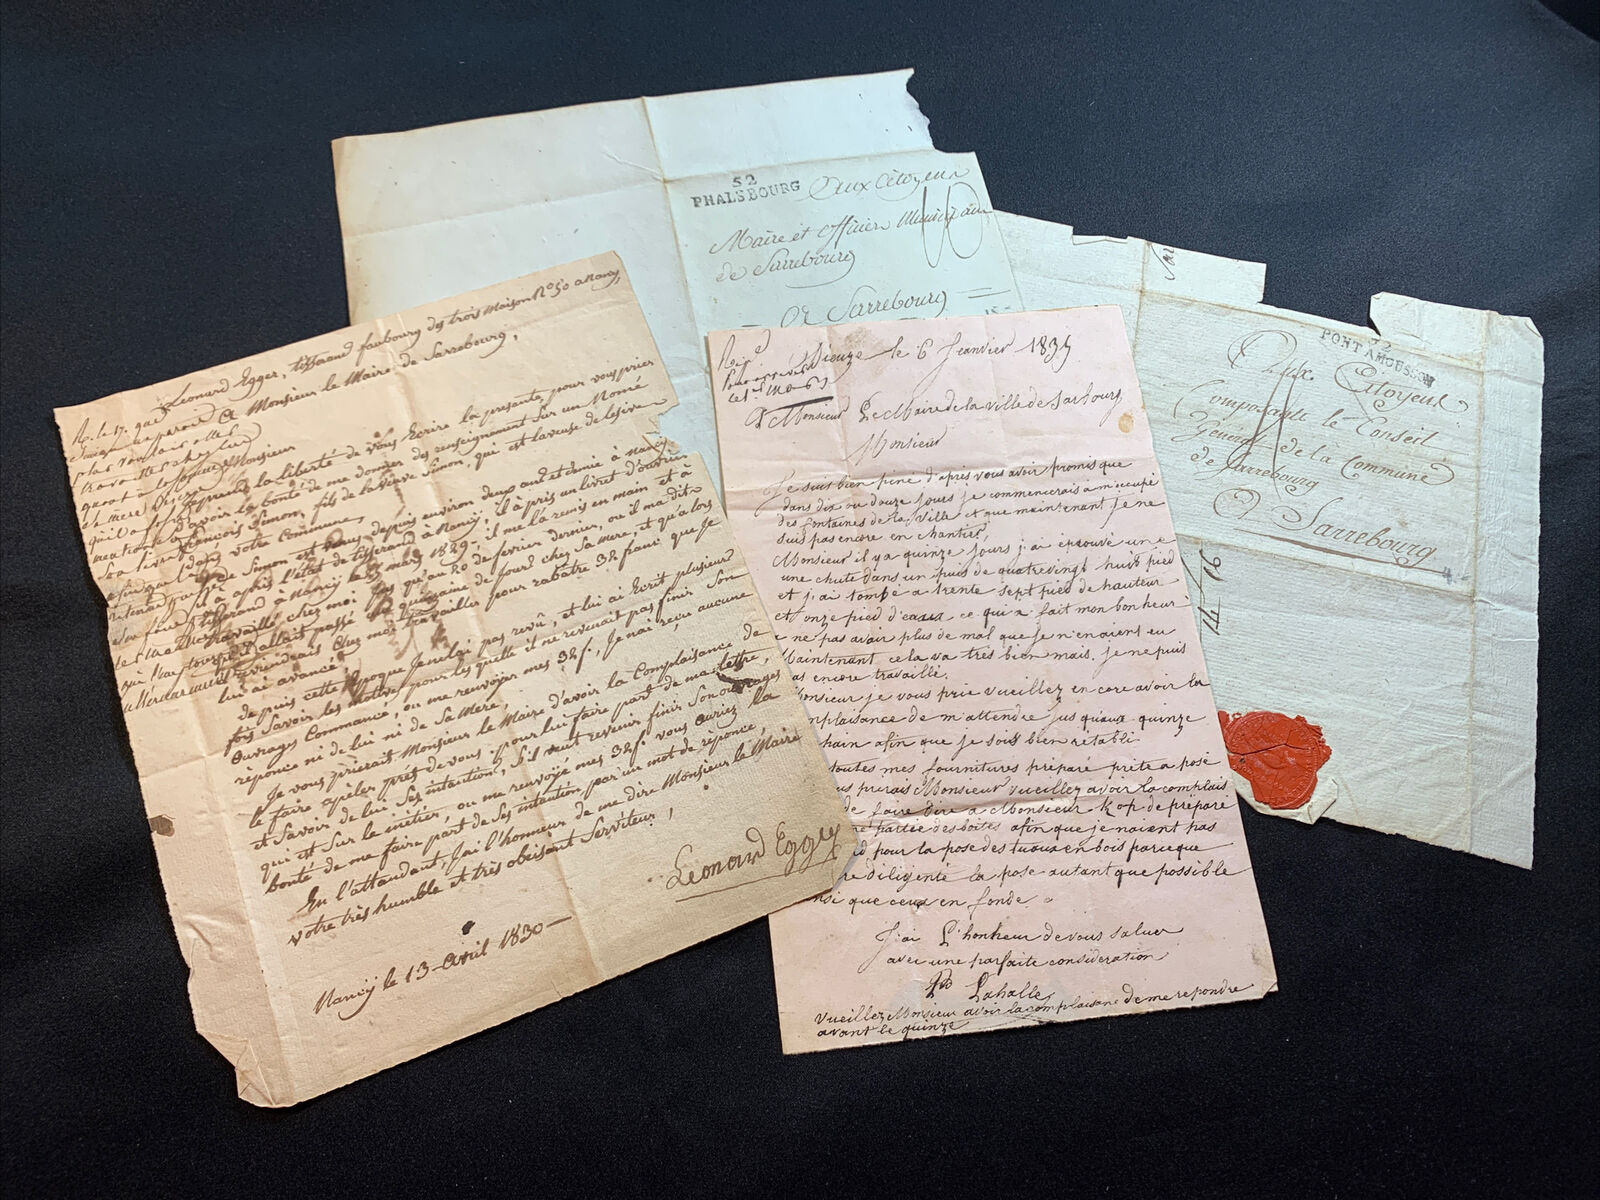 52
PHALSBOURG
Aux Citoyens
Maire et officiers Municipaux
de Sarrebourg
A Sarrebourg
22
PONT AMOUSSON
Aux Citoyens
Composant le Conseil
Général de la Commune
de Sarrebourg
A Sarrebourg
14 16
Léonard Egger, tisserand faubourg des trois Maison No 50 a Nancy,
A Monsieur le Maire de Sarrebourg,
Monsieur
la liberté de vous Ecrire la présente, pour vous prier
d'avoir la bonté de me donner des renseignement Sur un Nomé
françois Simon, fils de la Veuve Simon, qui est laveuse de lesive
dans votre Commune,
Simon est venu depuis environ deux ans et demie à nancy
il a apris l'état de tisserand à Nancy. il à pris un livret d'ouvrier
tisserand à Nancy le 23 mars 1829. il me l'a remis en main et à
travaillé chez moi jus qu'au 20 de fevrier dernier, ou il m'a dit
qu'il allait passé une quinzaine de jours chez Sa mere, et qu'alors
il reviendrais chez moi travailler pour rabatre 34 franc que je
lui ai avancé.
de puis cette Epoque Je ne l'ai pas revû, et lui ai Ecrit plusieurs
fois Savoir les motives pour les quelle il ne revenait pas finir Son
Ouvrages Commancé, ou me renvoyer mes 34 f. Je n'ai reçu aucune
reponce ni de lui ni de Sa Mere,
Je vous prierait Monsieur le Maire d'avoir la Complaisance de
le faire apeler près de vous pour lui faire part de ma lettre,
et Savoir de lui Ses intention, S'il veut revenir finir Son ouvrages
qui est Sur le métier, ou me renvoyé mes 34 f. vous auriez la
bonté de me faire part de Ses intention par un mot de réponce,
En l'attandant, Jai l'honneur de me dire Monsieur le Maire
votre très humble et très obeisant Serviteur,
Léonard Egger
Nancÿ le 13 avril 1830
Dieuze le 6 Jeanvier 1835
A Monsieur Le Maire de la ville de Sarbourg
Monsieur
Je suis bien piné d'après vous avoir promis que
dans dix ou douze jours je commencerais a m'occupé
des fontaines de la ville et que maintenant je ne
suis pas encore en chantier,
Monsieur il y a quinze jours j'ai éprouvé une
une chute dans un puis de quatrevingt huit pied
et j'ai tombé a trente sept pied de hauteur
et onze pied d'eaux ce qui a fait mon bonheur
de ne pas avoir plus de mal que je n'en aient eu
Maintenant cela va très bien mais je ne puis
pas encore travaille.
Monsieur je vous prie vueillez en core avoir la
complaisance de m'attendre jus quaux quinze
prochain afin que je sois bien rétabli
toutes mes fournitures préparé prète a posé
vous prirais Monsieur vueillez avoir la complais
de faire dire a Monsieur Kop de préparé
partie des boites afin que je naient pas
pour la pose des tuaux en bois parceque
diligenté la pose autant que possible
ainsi que ceux en fonde
J'ai L'honneur de vous saluer
avec une parfaite considération
Lahalle
Vueillez Monsieur avoir la complaisane de me repondre
avant le quinze